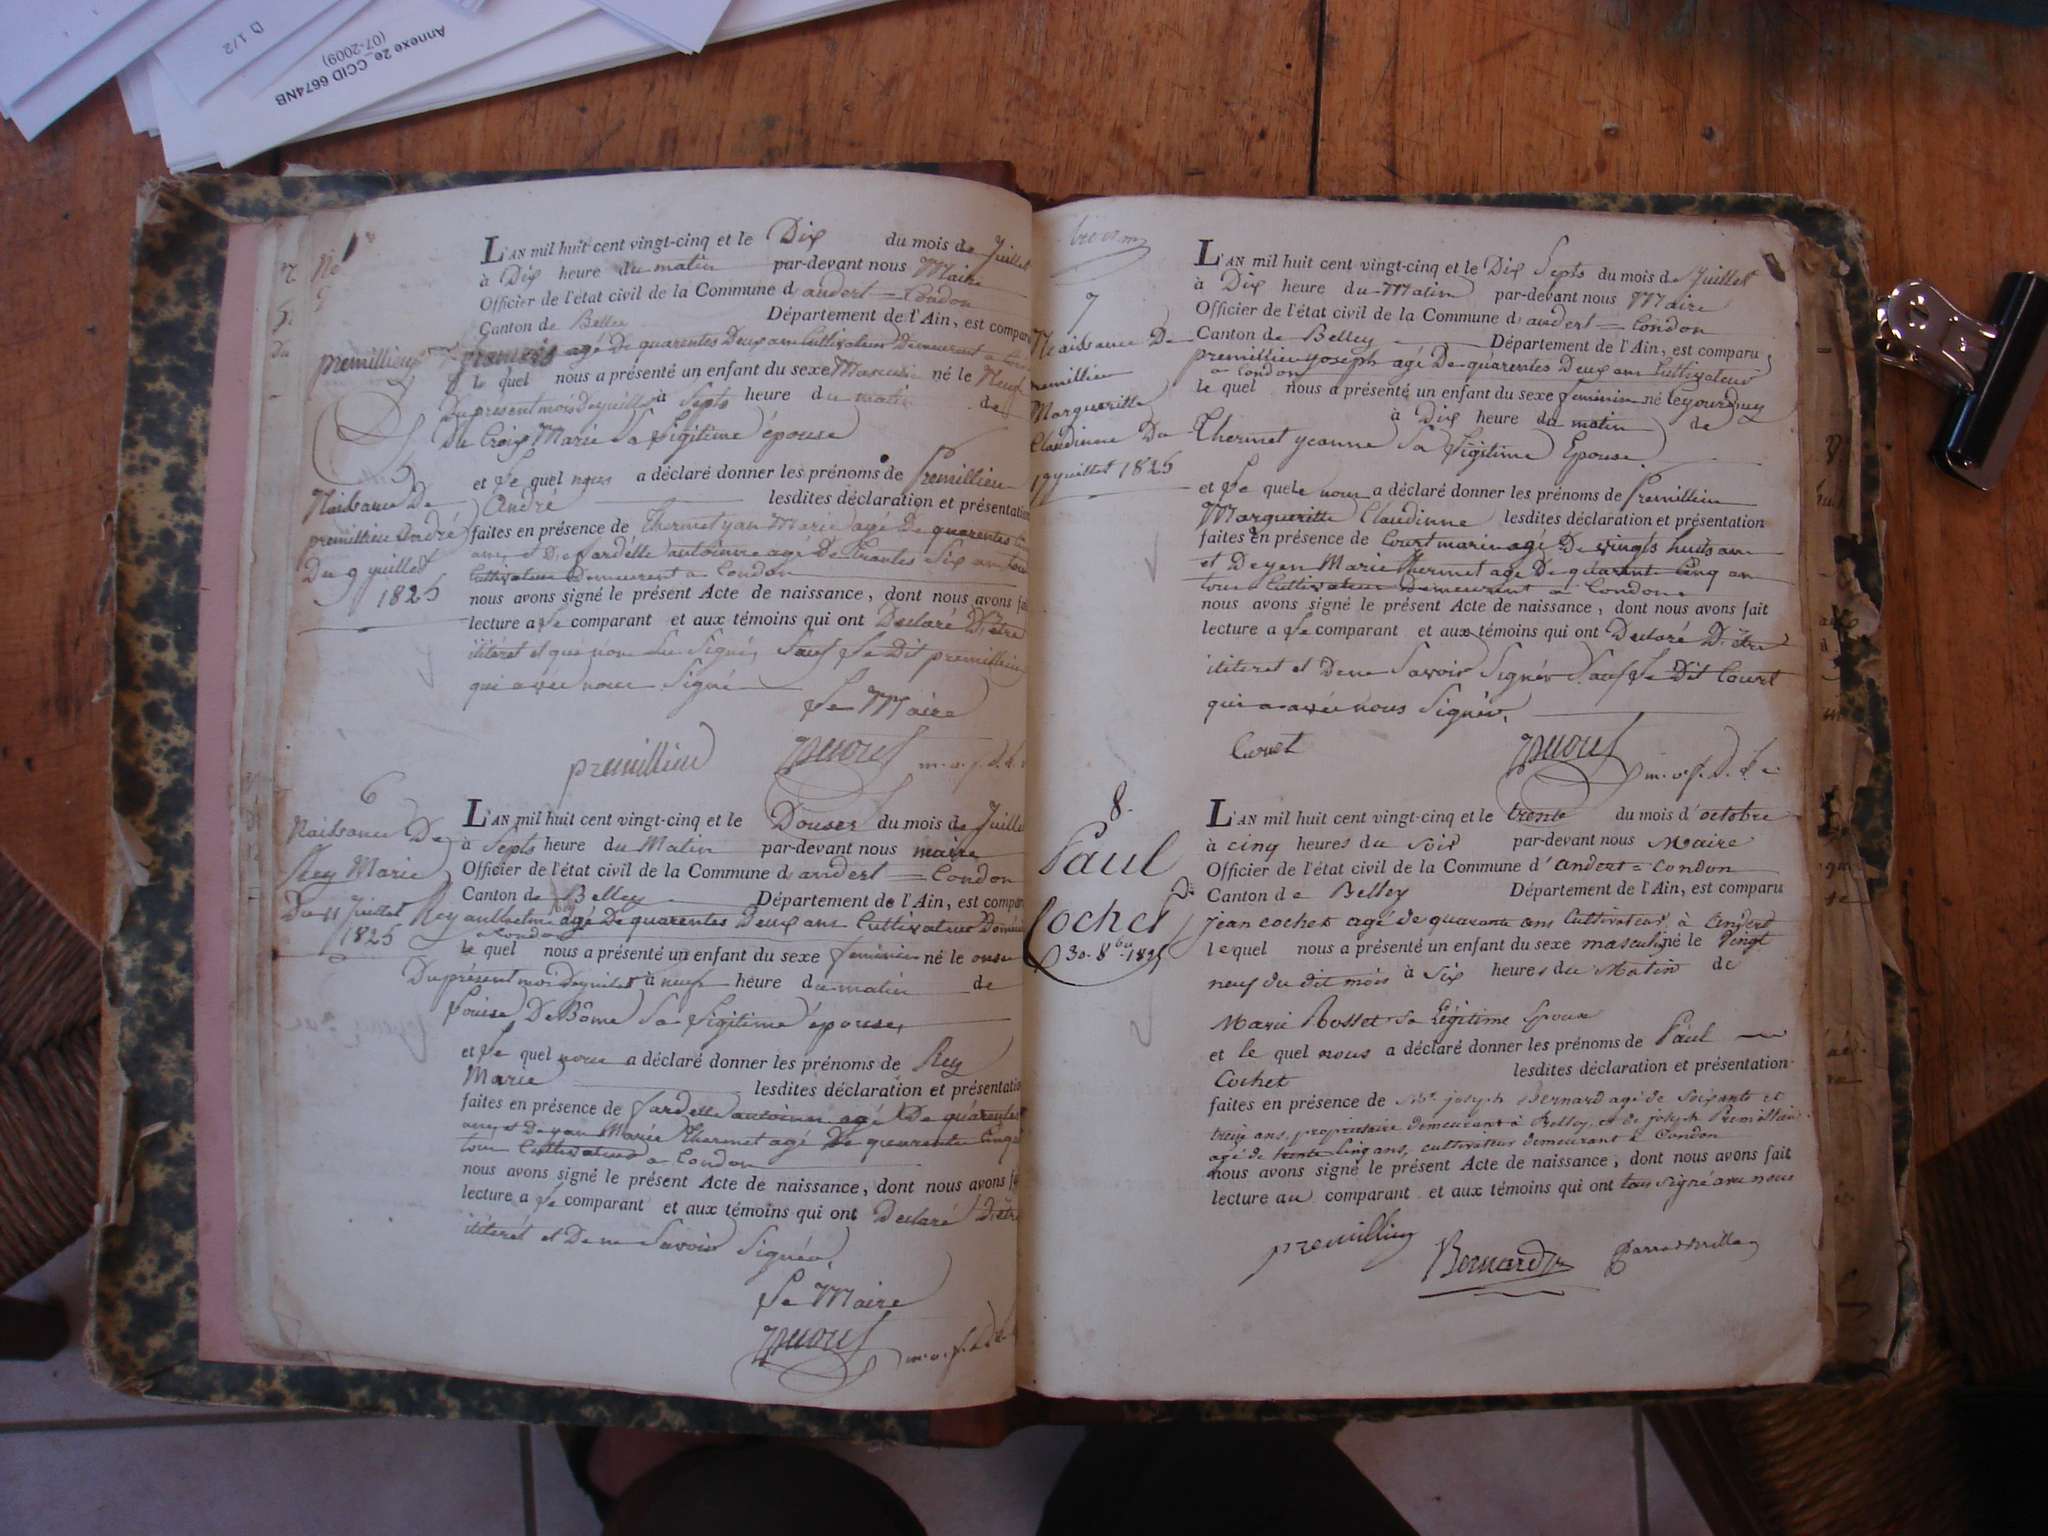 D 1/2
Annexe 2e_CCID 6674NB
(07-2009)
No
L'AN mil huit cent vingt-cinq et le Dix du mois de Juillet
à Dix heure du matin par-devant nous Maire
Officier de l'état civil de la Commune d andert = Condon
Canton de Belley Département de l'Ain, est comparu
premillieu françois agé De quarentes Deux ans Cultivateur Demeurent a
le quel nous a présenté un enfant du sexe Masculin né le Neuf
Du present mois De juillet à Septs heure du matin de
De Croix Marie Sa Ligitime épouse
et Le quel nous a déclaré donner les prénoms de Premillieu
André lesdites déclaration et présentation
faites en présence de Thermet yan Marie agé De quarentes
ans et De fardelle antoinne agé De trantes Six an tous
Cultivateur Demeurent a Condon
nous avons signé le présent Acte de naissance, dont nous avons fai
lecture a Le comparant et aux témoins qui ont Declaré D'être
ititeret et que nom Su Signé, Sauf Le Dit premillieu
qui a avec nous Signé
Le Maire
premillieu
Naissance De
premillieu André
Du 9 juillet
1825
6
Naissance De
Rey Marie
Du 11 Juillet
1825
L'AN mil huit cent vingt-cinq et le Douser du mois de Juille
à Septs heure du Matin par-devant nous maire
Officier de l'état civil de la Commune d andert = Condon
Canton de Belley Département de l'Ain, est compar
Rey anthelme agé De quarentes Deux ans Cultivateur
a Condon
le quel nous a présenté un enfant du sexe feminin né le onse
Du présent mois De juillet à neuf heure du matin de
Louise De Bôme Sa Ligitime épouse,
et Le quel nous a déclaré donner les prénoms de Rey
Marie lesdites déclaration et présentatio
faites en présence de fardelle antoinne agé De quarentes
ans et De yan Marie Thermet agé De quarente Cinq
tous Cultivateurs a Condon
nous avons signé le présent Acte de naissance, dont nous avons f
lecture a Le comparant et aux témoins qui ont Declaré D'étre
ititerét et De ne Savoir Signér,
Le Maire
7
Naissance De
premillieu
Margueritte
Claudinne Du
17 juillet 1825
L'AN mil huit cent vingt-cinq et le Dix Septs du mois de Juillet
à Dix heure du Matin par-devant nous Maire
Officier de l'état civil de la Commune d andert = Condon
Canton de Belley Département de l'Ain, est comparu
premillieu yoseph agé De quarentes Deux ans Cultivateur
a Condon
le quel nous a présenté un enfant du sexe feminin né le
à Dix heure du matin de
Thermet yeanne Sa Ligitime Epouse
et Le quele nous a déclaré donner les prénoms de Premillieu
Margueritte Claudinne lesdites déclaration et présentation
faites en présence de Court marin agé De vingts huits ans
et De yan Marie Thermet agé De quarente Cinq an
tous Cultivateur Demeurent a Condon
nous avons signé le présent Acte de naissance, dont nous avons fait
lecture a Le comparant et aux témoins qui ont Declaré D'étre
ititeret et De ne Savoir Signér Sauf Le Dit Court
qui a avec nous Signér,
Court
8.
Paul
Cochet
30. 8bre 1825
L'AN mil huit cent vingt-cinq et le trente du mois d'octobre
à cinq heures du Soir par-devant nous Maire
Officier de l'état civil de la Commune d'andert = Condon
Canton de Belley Département de l'Ain, est comparu
jean cochet agé de quarante ans Cultivateur à Andert
lequel nous a présenté un enfant du sexe masculin né le Vingt
neuf du dit mois à Six heures du Matin de
Marie Rosset sa Légitime Epouse
et le quel nous a déclaré donner les prénoms de Paul
Cochet lesdites déclaration et présentation
faites en présence de Mr. joseph Bernard agé de Soixante et
treize ans, propriétaire demeurant à Belley, et de joseph Premillieu
agé de trente Cinq ans, cultivateur demeurant à Condon
nous avons signé le présent Acte de naissance, dont nous avons fait
lecture au comparant et aux témoins qui ont tous signé avec nous
premillieu Bernard